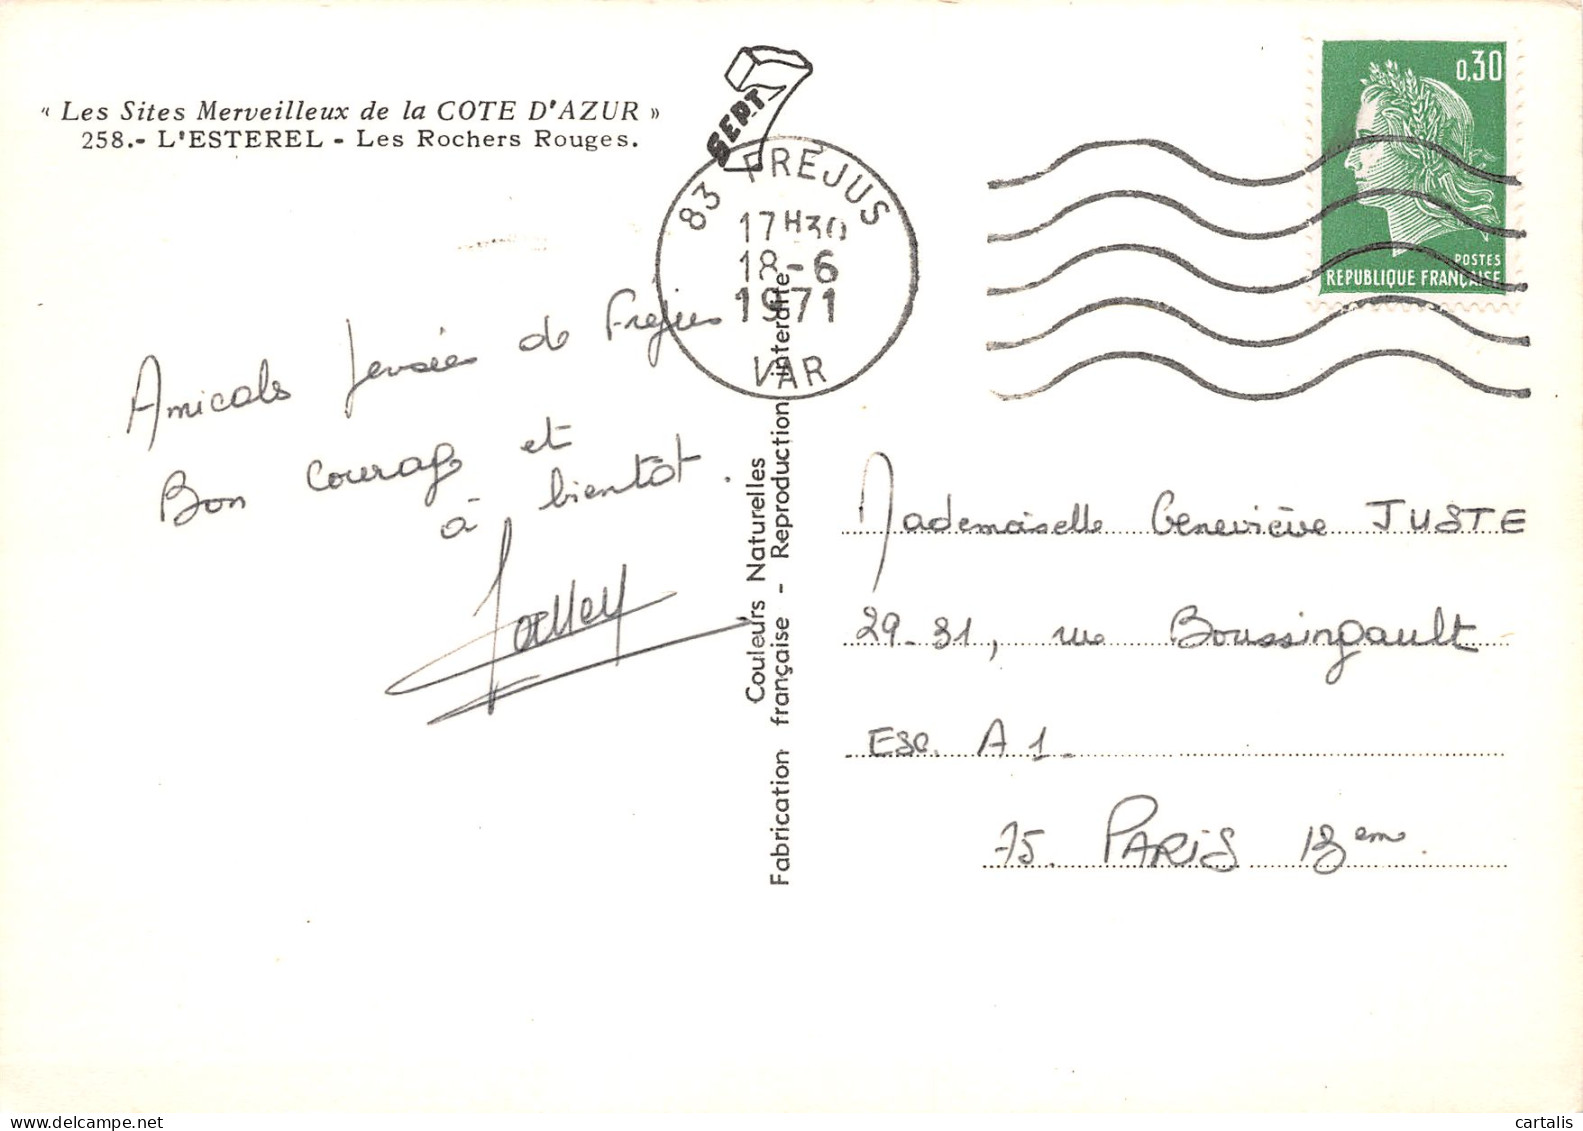 « Les Sites Merveilleux de la COTE D'AZUR »
258.- L'ESTEREL - Les Rochers Rouges.
SEPT
83 FREJUS
17H30
18-6
1971
VAR
0,30
POSTES
REPUBLIQUE FRANÇAISE
Amicals pensées de Fréjus
Bon courage et
à bientôt.
Couleurs Naturelles
Fabrication française - Reproduction interdite
Mademoiselle Geneviève JUSTE
29-31, rue Boussingault
Esc. A1.
75. PARIS 13em.
cartalis